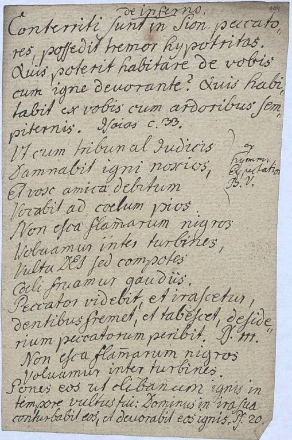 de inferno.
Conterriti sunt in Sion peccato-
res, possedit tremor hypocritas.
Quis poterit habitare de vobis
cum igne devorante? Quis habi-
tabit ex vobis cum ardoribus sem-
piternis. Isaias c. 33.
Ut cum tribunal Judicis
Damnabit igni noxios,
Et vox amica debitum
Vocabit ad coelum pios.
ex
hymno
Expectation
B. V.
Non esca flam̄arum nigros
Volvamur inter turbines,
Vultu DEI sed compotes
Coeli fruamur gaudiis.
Peccator videbit, et irascetur,
dentibus fremet, et tabescet, deside-
rium peccatorum peribit. Ps. 111.
Non esca flam̄arum nigros
Volvamur inter turbines.
Pones eos ut clibanum ignis in
tempore vultus tui: Dominus in ira sua
conturbabit eos, et devorabit eos ignis. Ps. 20.